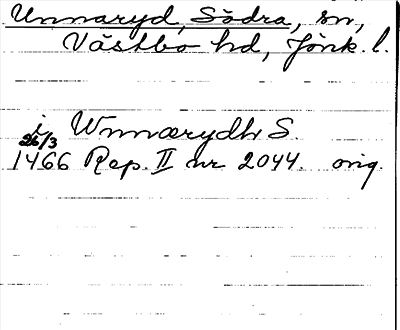 Unnaryd, Södra, sn,
Västbo hd, Jönk. l.
i Wnnærydh S.
26/3
1466 Rep. II nr 2044. orig.